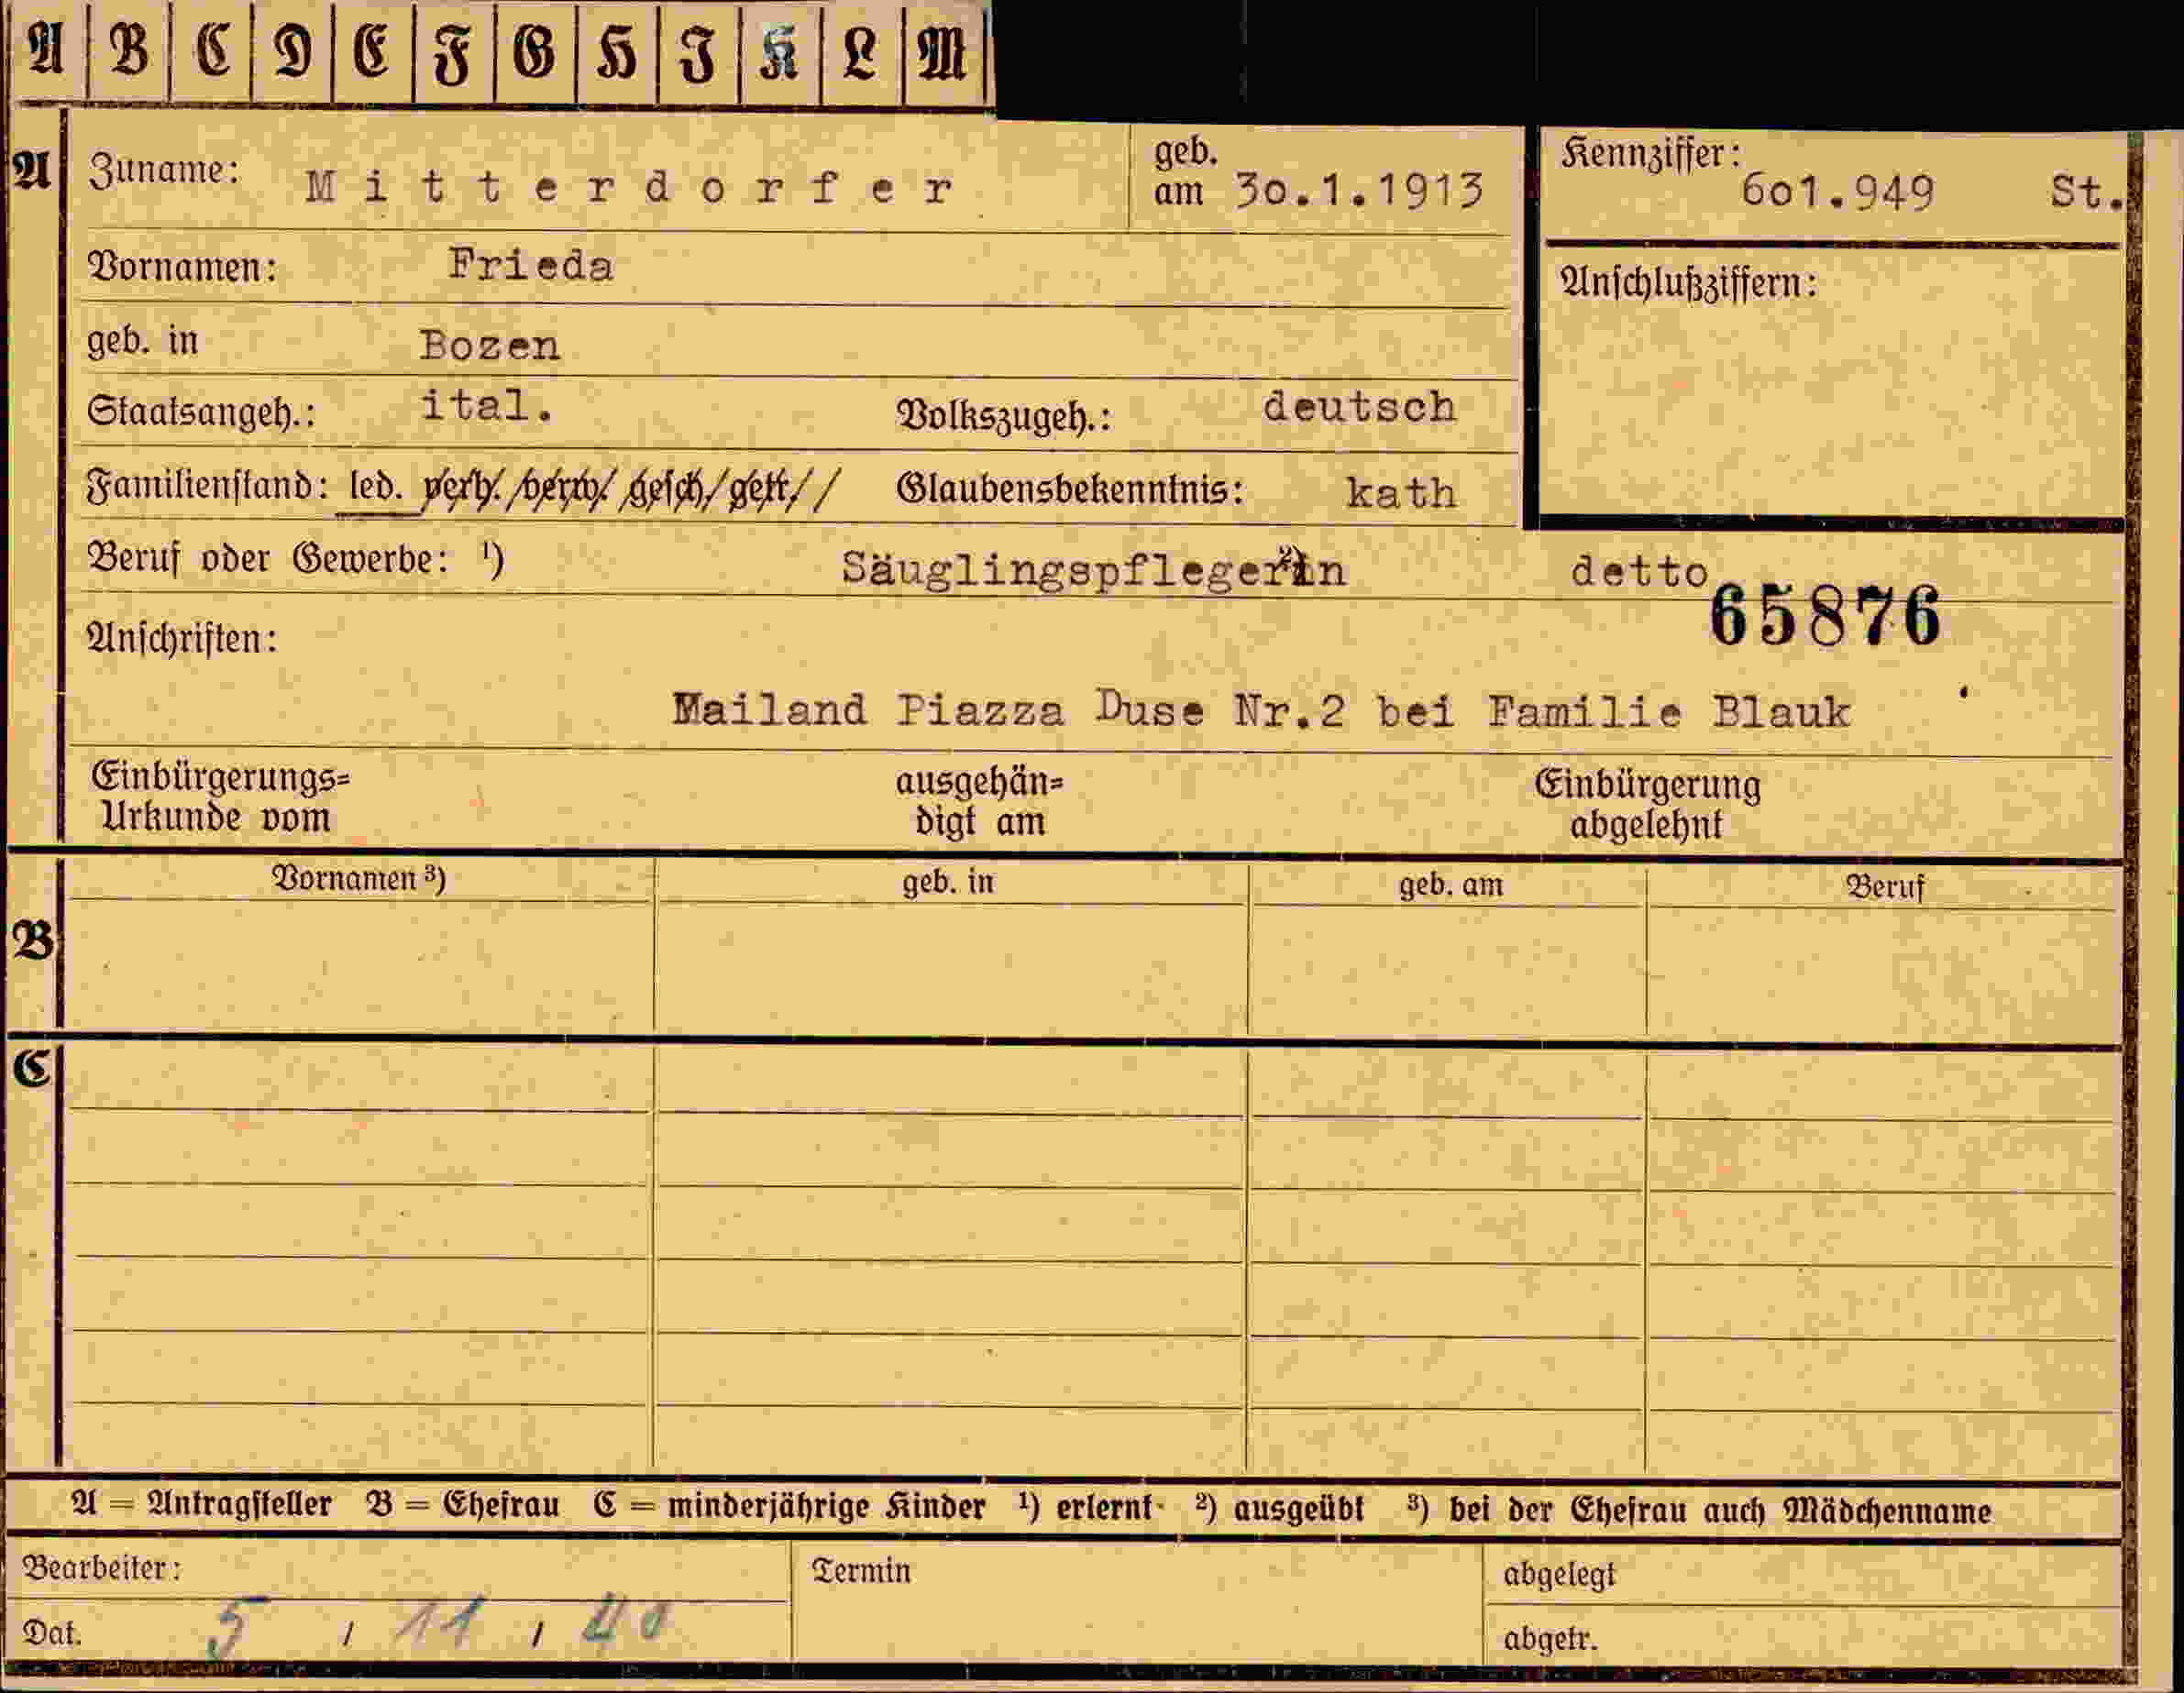 A B C D E F G H I K L M
A Zuname: Mitterdorfer geb. am 30.1.1913 Kennziffer: 601.949 St.
Vornamen: Frieda Anschlußziffern:
geb. in Bozen
Staatsangeh.: ital. Volkszugeh.: deutsch
Familienstand: led. verh. verw. gesch. getr. Glaubensbekenntnis: kath
Beruf oder Gewerbe: ¹) Säuglingspflegerin ²) detto
65876
Anschriften:
Mailand Piazza Duse Nr.2 bei Familie Blauk
Einbürgerungs= ausgehän= Einbürgerung
Urkunde vom digt am abgelehnt
Vornamen ³) geb. in geb. am Beruf
B
C
A = Antragsteller B = Ehefrau C = minderjährige Kinder ¹) erlernt ²) ausgeübt ³) bei der Ehefrau auch Mädchenname
Bearbeiter: Termin abgelegt
Dat. 5 / 11 / 40 abgetr.